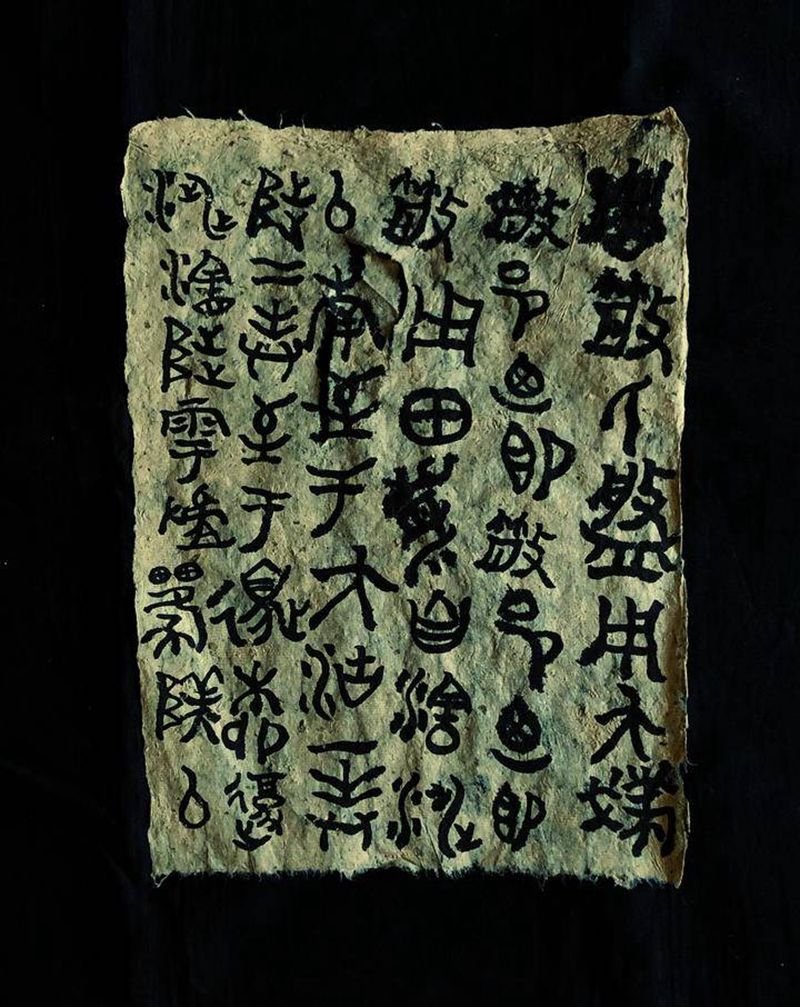 散盤用夨撲
散邑廼即散邑廼即
散用田眉自瀗涉
以南至于大沽一封
陟二封至于邊柳復
涉瀗陟雩𨻌以